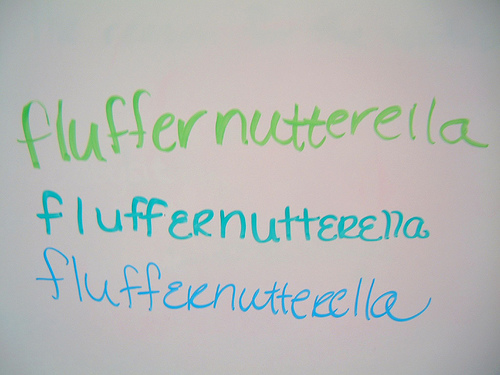 fluffernutterella
fluffernutterella
fluffernutterella